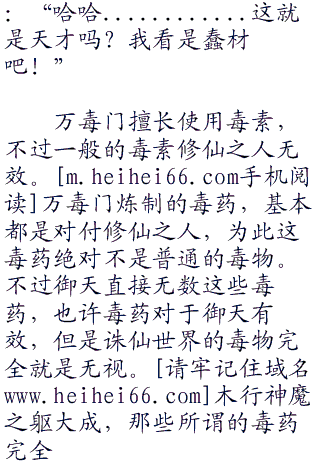 ：“哈哈............这就
是天才吗？我看是蠢材
吧！”
万毒门擅长使用毒素，
不过一般的毒素修仙之人无
效。[m.heihei66.com手机阅
读]万毒门炼制的毒药，基本
都是对付修仙之人，为此这
毒药绝对不是普通的毒物。
不过御天直接无数这些毒
药，也许毒药对于御天有
效，但是诛仙世界的毒物完
全就是无视。[请牢记住域名
www.heihei66.com]木行神魔
之躯大成，那些所谓的毒药
完全